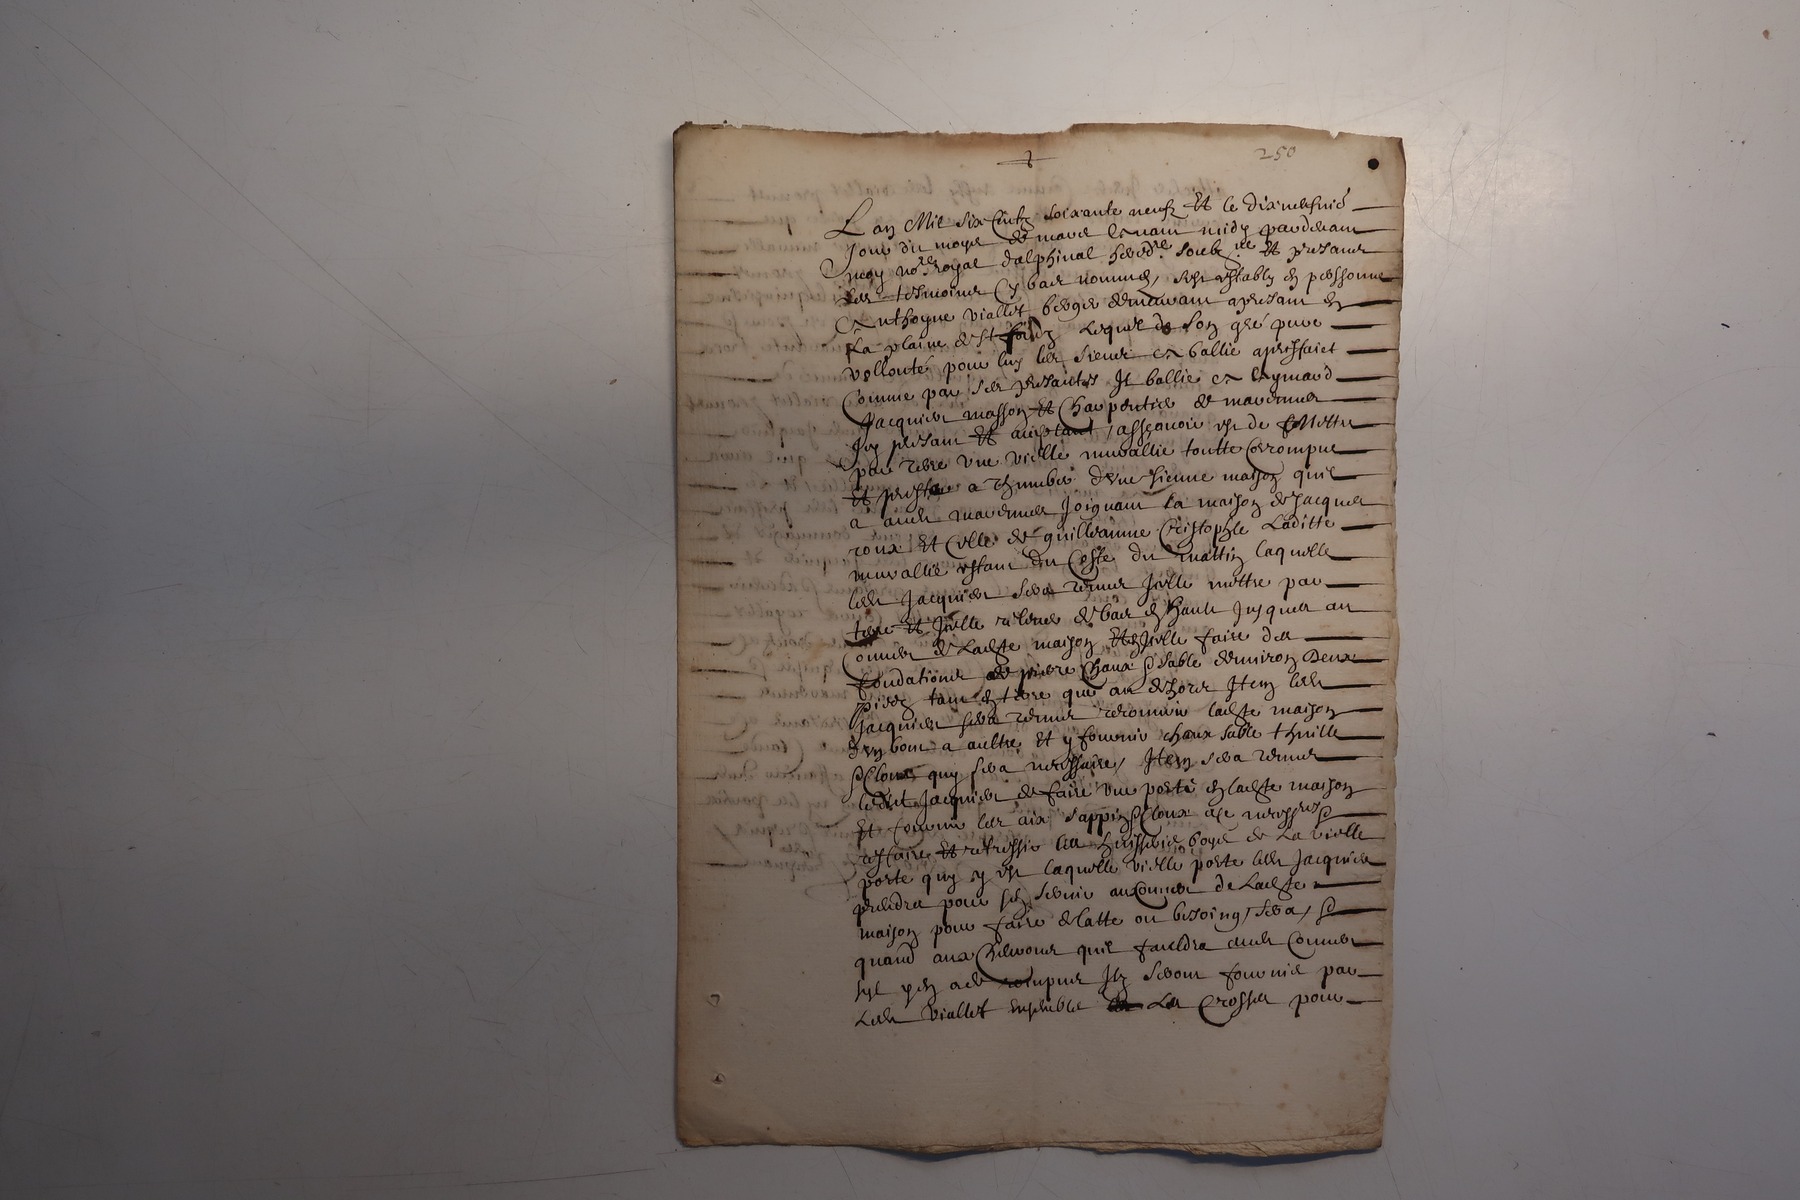 250
Lan Mil six Centz soixante neufz Et le dixneufvie
Jour du moys de mars avant midy pardevant
moy nore royal dalphinal heredre soubzne Et presance
des tesmoins Cy bas nommes, sest estably en personne
Anthoyne viallet berger demeurant apresant en
La plaine de St Lequel de son gré pure
vollonté pour luy les siens a ballie aprisfaict
Comme par ses presantes Jl ballie a Eymard
Jacquier masson Et Charpentier de
Jcy presant Et aceptant, assçavoir est de Mettre
par terre une vielle murallie toutte Corrompue
Et preste a thumber dune sienne maison quil
a audt Joignant la maison de Jacques
roux Et Celle de guilleaume Cristophle Laditte
murallie estant du Coste du mattin laquelle
ledt Jacquier sera tenu Jcelle mettre par
terre Et Jcelle de bas en hault Jusques au
Couvert de Ladte maison Et Jcelle faire des
fondations de pierre Chaux & sable denviron Deux
piedz tant en terre que au dehors Jtem ledt
Jacquier sera tenu recouvrir ladte maison
dun bout a aultre Et y fournir chaux sable thuille
& Cloux quy sera necessaire, Jtem sera tenu
ledit Jacquier de faire une porte en ladte maison
Et fournir les aix sappin & Cloux a ce necessres &
reffaire Et retressir les boys de La vielle
porte quy y est laquelle vielle porte ledt Jacquier
prendra pour sen servir au Couvert de Ladte
maison pour faire de latte ou besoing, sera, &
quand aux Chevrons quil fauldra audt Couvert
syl yen a de rompus Jlz seront fournis par
Ledt viallet ensemble Les Crosses pour